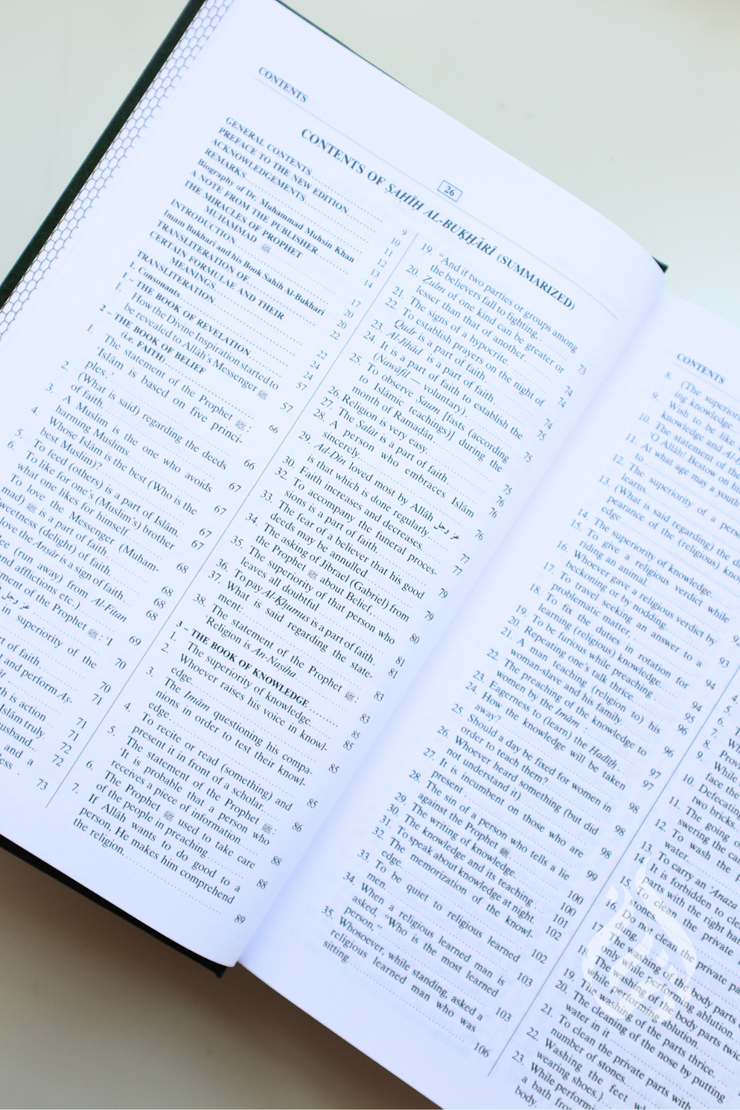 CONTENTS
26
CONTENTS OF SAHÎH AL-BUKHÂRÎ (SUMMARIZED)
GENERAL CONTENTS
PREFACE TO THE NEW EDITION 9
ACKNOWLEDGEMENTS 10
REMARKS 11
Biography of Dr. Muhammad Muhsin Khan 12
A NOTE FROM THE PUBLISHER 13
THE MIRACLES OF PROPHET
MUHAMMAD ﷺ 14
INTRODUCTION 17
Imam Bukhari and his Book Sahih Al-Bukhari 20
TRANSLITERATION OF
CERTAIN FORMULAE AND THEIR
MEANINGS 22
TRANSLITERATION 24
1. Consonants 24
1 – THE BOOK OF REVELATION 57
1. How the Divine Inspiration started to
be revealed to Allâh's Messenger ﷺ 57
2 – THE BOOK OF BELIEF
(i.e. FAITH)
1. The statement of the Prophet ﷺ:
Islam is based on five princi-
ples. 66
2. (What is said) regarding the deeds
of faith 66
A Muslim is the one who avoids
harming Muslims. 67
4. Whose Islâm is the best (Who is the
best Muslim)? 67
5. To feed (others) is a part of Islâm. 67
6. To like for one's (Muslim's) brother
what one likes for himself 68
To love the Messenger (Muham-
mad) ﷺ is a part of faith. 68
weetness (delight) of faith. 68
love the Ansâr is a sign of faith. 68
ee (run away) from Al-Fitan
and afflictions etc.) 69
ment of the Prophet ﷺ: 'I
70
in superiority of the
70
rt of faith. 70
t and perform As-
71
th is action 71
Islam truly 72
usband. 72
and a
ess. 73
19. "And if two parties or groups among
the believers fall to fighting, 73
20. Zulm of one kind can be greater or
lesser than that of another 74
21. The signs of a hypocrite 74
22. To establish prayers on the night of
Qadr is a part of faith. 74
23. Al-Jihâd is a part of faith. 75
24. It is a part of faith to establish the
(Nawâfil — voluntary). 75
25. To observe Saum [fasts (according
to Islamic teachings)] during the
month of Ramadân. 75
26. Religion is very easy. 75
27. The Salât is a part of faith. 76
28. A person who embraces Islâm
sincerely. 76
29. Ad-Dîn loved most by Allâh عز وجل
is that which is done regularly. 76
30. Faith increases and decreases. 77
32. To accompany the funeral proces-
sions is a part of faith. 77
33. The fear of a believer that his good
deeds may be annulled 79
34. The asking of Jibrael (Gabriel) from
the Prophet ﷺ about Belief. 79
35. The superiority of that person who
leaves all doubtful 80
36. To pay Al-Khumus is a part of faith. 81
37. What is said regarding the state-
ment: 81
38. The statement of the Prophet ﷺ:
'Religion is An-Nasiha 83
3 – THE BOOK OF KNOWLEDGE 83
1. The superiority of knowledge. 83
2. Whoever raises his voice in knowl-
edge. 85
3. The Imâm questioning his compa-
nions in order to test their knowl-
edge. 85
4. To recite or read (something) and
present it in front of a scholar. 85
5. The statement of the Prophet ﷺ:
'It is probable that a person who
receives a piece of information 86
6. The Prophet ﷺ used to take care
of the people in preaching 88
7. If Allâh wants to do good to a
person, He makes him comprehend
the religion. 89
CONTENTS
8. (The superior
ing knowledge
9. Wish to be like
ing knowledge and
10. The statement of the
'O Allâh! Bestow on
11. At what age may a youth
12. The superiority of a perso
learns
13. (What is said regarding) the di
pearance of the (religious) know
edge
14. The superiority of knowledge.
15. To give a religious verdict while
riding an animal
16. Whoever gave a religious verdict by
beckoning or by nodding. 92
17. To travel seeking an answer to a
problematic matter. 93
18. To fix the duties in rotation for
learning (religious) knowledge. 94
19. To be furious while preaching 94
20. Repeating one's talk thrice. 95
21. A man teaching (religion) to his
woman-slave and his family. 96
22. The preaching of the knowledge to
women by the Imâm. 96
23. Eagerness to (learn) the Hadîth 97
24. How the knowledge will be taken
away? 97
25. Should a day be fixed for women in
order to teach them? 98
26. Whoever heard something (but did
not understand it) 98
27. It is incumbent on those who are
present 98
28. The sin of a person who tells a lie
against the Prophet ﷺ 99
29. The writing of knowledge. 100
30. The knowledge and its teaching 101
31. To speak about knowledge at night. 102
32. The memorization of the knowl-
edge. 102
33. To be quiet to religious learned
men. 103
34. When a religious learned man is
asked, "Who is the most learned
person." 103
35. Whosoever, while standing, asked a
religious learned man who was
sitting 106
8. Wha
face the
9. Defecating
10. two bricks.
11. The going o
swering the cal
12. To wash the
water.
13. To carry an 'Anaza
14. It is forbidden to cle
parts with the right ha
15. To clean the private
stones.
16. Do not clean the private pa
dung
17. The washing of the body parts
only while performing ablution
18. The washing of the body parts twic
while performing ablution.
19. The washing of the parts thrice.
20. The cleaning of the nose by putting
water in it
21. To clean the private parts with
number of stones.
22. Washing the feet wh
wearing shoes.)
23. While performi
a bath from
body.